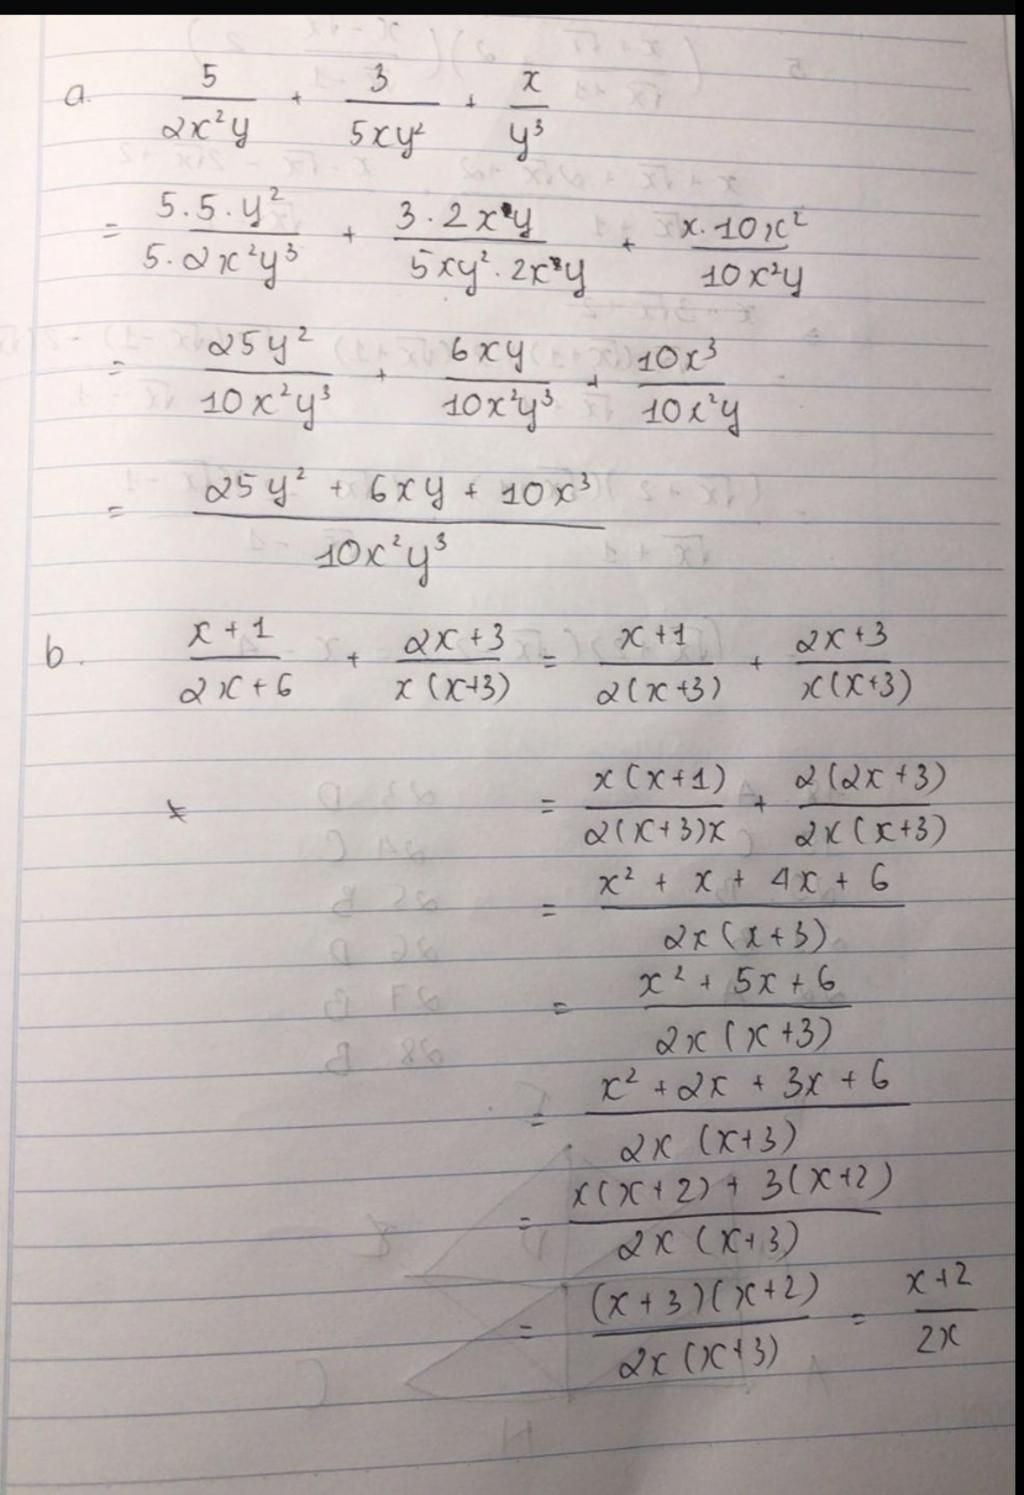 a. 5/(2x²y) + 3/(5xy²) + x/y³
= (5.5.y²)/(5.2x²y³) + (3.2xy)/(5xy².2xy) + (x.10x²)/(10x²y)
= 25y²/(10x²y³) + 6xy/(10x²y³) + 10x³/(10x²y)
= (25y² + 6xy + 10x³)/(10x²y³)
b. (x+1)/(2x+6) + (2x+3)/(x(x+3)) = (x+1)/(2(x+3)) + (2x+3)/(x(x+3))
= (x(x+1))/(2(x+3)x) + (2(2x+3))/(2x(x+3))
= (x² + x + 4x + 6)/(2x(x+3))
= (x² + 5x + 6)/(2x(x+3))
= (x² + 2x + 3x + 6)/(2x(x+3))
= (x(x+2) + 3(x+2))/(2x(x+3))
= ((x+3)(x+2))/(2x(x+3)) = (x+2)/(2x)